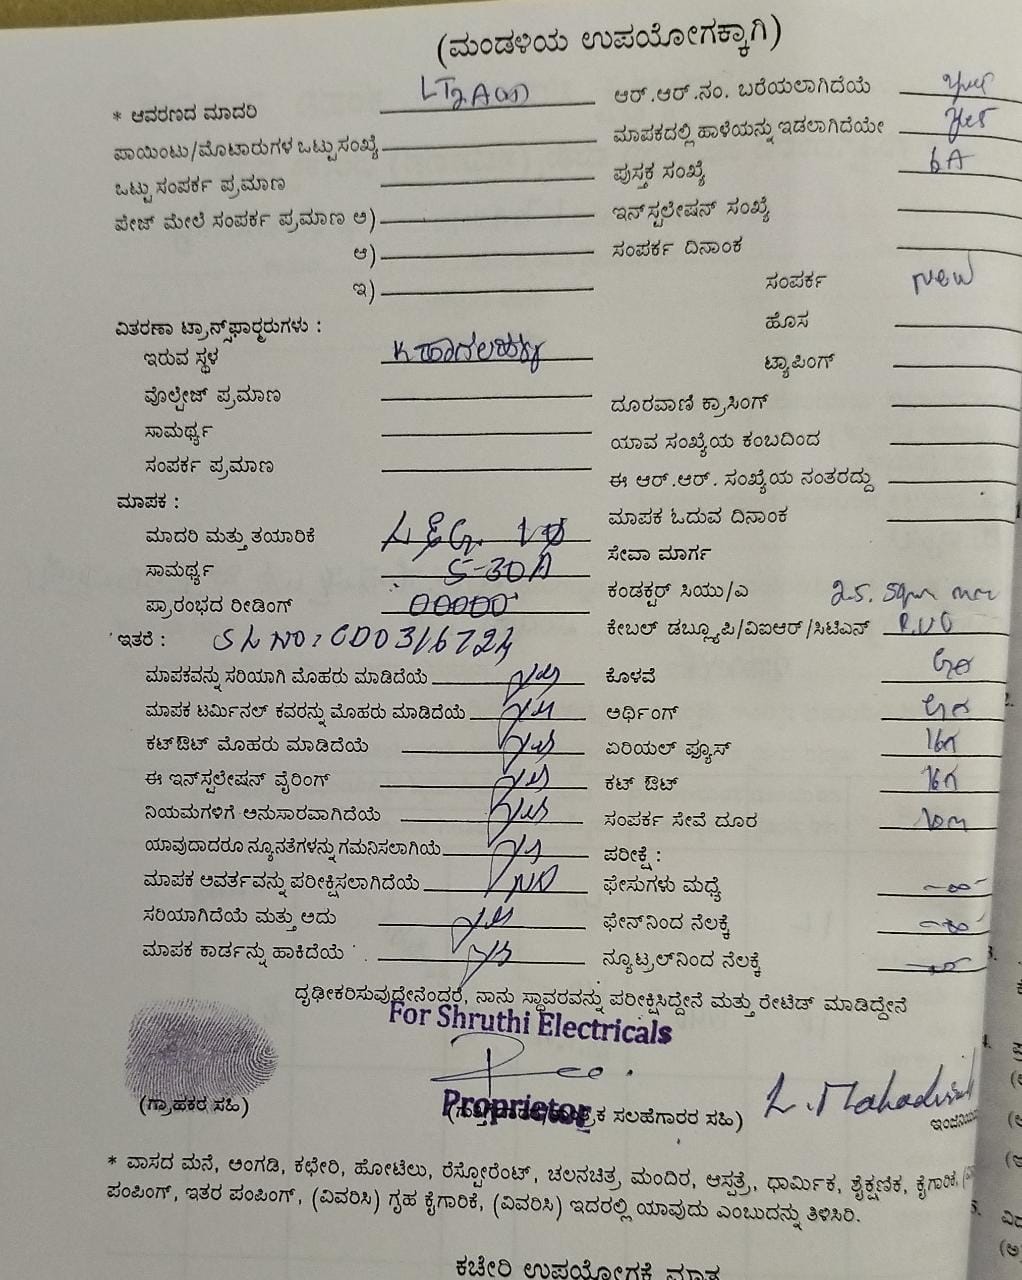 (ಮಂಡಳಿಯ ಉಪಯೋಗಕ್ಕಾಗಿ)
* ಆವರಣದ ಮಾದರಿ LT2A(i)
ಪಾಯಿಂಟು/ಮೊಟಾರುಗಳ ಒಟ್ಟುಸಂಖ್ಯೆ
ಒಟ್ಟು ಸಂಪರ್ಕ ಪ್ರಮಾಣ
ಪೇಜ್ ಮೇಲೆ ಸಂಪರ್ಕ ಪ್ರಮಾಣ ಅ)
ಆ)
ಇ)
ವಿತರಣಾ ಟ್ರಾನ್ಸ್‌ಫಾರ್‍ಮರುಗಳು :
ಇರುವ ಸ್ಥಳ
ವೊಲ್ಟೇಜ್ ಪ್ರಮಾಣ
ಸಾಮರ್ಥ್ಯ
ಸಂಪರ್ಕ ಪ್ರಮಾಣ
ಮಾಪಕ :
ಮಾದರಿ ಮತ್ತು ತಯಾರಿಕೆ L&G 1Ø
ಸಾಮರ್ಥ್ಯ 5-30A
ಪ್ರಾರಂಭದ ರೀಡಿಂಗ್ 00000
ಇತರೆ : SL NO: CD0316724
ಮಾಪಕವನ್ನು ಸರಿಯಾಗಿ ಮೊಹರು ಮಾಡಿದೆಯೆ yes
ಮಾಪಕ ಟರ್ಮಿನಲ್ ಕವರನ್ನು ಮೊಹರು ಮಾಡಿದೆಯೆ yes
ಕಟ್‌ಔಟ್ ಮೊಹರು ಮಾಡಿದೆಯೆ yes
ಈ ಇನ್‌ಸ್ಟಲೇಷನ್ ವೈರಿಂಗ್ yes
ನಿಯಮಗಳಿಗೆ ಅನುಸಾರವಾಗಿದೆಯೆ yes
ಯಾವುದಾದರೂ ನ್ಯೂನತೆಗಳನ್ನು ಗಮನಿಸಲಾಗಿಯೆ
ಮಾಪಕ ಆವರ್ತವನ್ನು ಪರೀಕ್ಷಿಸಲಾಗಿದೆಯೆ NO
ಸರಿಯಾಗಿದೆಯೆ ಮತ್ತು ಅದು yes
ಮಾಪಕ ಕಾರ್ಡನ್ನು ಹಾಕಿದೆಯೆ yes
ಆರ್.ಆರ್.ನಂ. ಬರೆಯಲಾಗಿದೆಯೆ yes
ಮಾಪಕದಲ್ಲಿ ಹಾಳೆಯನ್ನು ಇಡಲಾಗಿದೆಯೇ yes
ಪುಸ್ತಕ ಸಂಖ್ಯೆ 6A
ಇನ್‌ಸ್ಟಲೇಷನ್ ಸಂಖ್ಯೆ
ಸಂಪರ್ಕ ದಿನಾಂಕ
ಸಂಪರ್ಕ New
ಹೊಸ
ಟ್ಯಾಪಿಂಗ್
ದೂರವಾಣಿ ಕ್ರಾಸಿಂಗ್
ಯಾವ ಸಂಖ್ಯೆಯ ಕಂಬದಿಂದ
ಈ ಆರ್.ಆರ್. ಸಂಖ್ಯೆಯ ನಂತರದ್ದು
ಮಾಪಕ ಓದುವ ದಿನಾಂಕ
ಸೇವಾ ಮಾರ್ಗ
ಕಂಡಕ್ಟರ್ ಸಿಯು/ಎ 2.5. Sqm mm
ಕೇಬಲ್ ಡಬ್ಲ್ಯೂಪಿ/ವಿಐಆರ್/ಸಿಟಿಎನ್
ಕೊಳವೆ
ಅರ್ಥಿಂಗ್
ಏರಿಯಲ್ ಫ್ಯೂಸ್
ಕಟ್ ಔಟ್
ಸಂಪರ್ಕ ಸೇವೆ ದೂರ 10m
ಪರೀಕ್ಷೆ :
ಫೇಸುಗಳು ಮಧ್ಯೆ
ಫೇಸ್‌ನಿಂದ ನೆಲಕ್ಕೆ
ನ್ಯೂಟ್ರಲ್‌ನಿಂದ ನೆಲಕ್ಕೆ
ದೃಢೀಕರಿಸುವುದೇನೆಂದರೆ, ನಾನು ಸ್ಥಾವರವನ್ನು ಪರೀಕ್ಷಿಸಿದ್ದೇನೆ ಮತ್ತು ರೇಟೆಡ್ ಮಾಡಿದ್ದೇನೆ
For Shruthi Electricals
Proprietor
(ಗ್ರಾಹಕರ ಸಹಿ)
ಸಲಹೆಗಾರರ ಸಹಿ)
* ವಾಸದ ಮನೆ, ಅಂಗಡಿ, ಕಛೇರಿ, ಹೋಟೆಲು, ರೆಸ್ಟೋರೆಂಟ್, ಚಲನಚಿತ್ರ ಮಂದಿರ, ಆಸ್ಪತ್ರೆ, ಧಾರ್ಮಿಕ, ಶೈಕ್ಷಣಿಕ, ಕೈಗಾರಿಕೆ,
ಪಂಪಿಂಗ್, ಇತರ ಪಂಪಿಂಗ್, (ವಿವರಿಸಿ) ಗೃಹ ಕೈಗಾರಿಕೆ, (ವಿವರಿಸಿ) ಇದರಲ್ಲಿ ಯಾವುದು ಎಂಬುದನ್ನು ತಿಳಿಸಿರಿ.
ಕಚೇರಿ ಉಪಯೋಗಕ್ಕೆ ಮಾತ್ರ